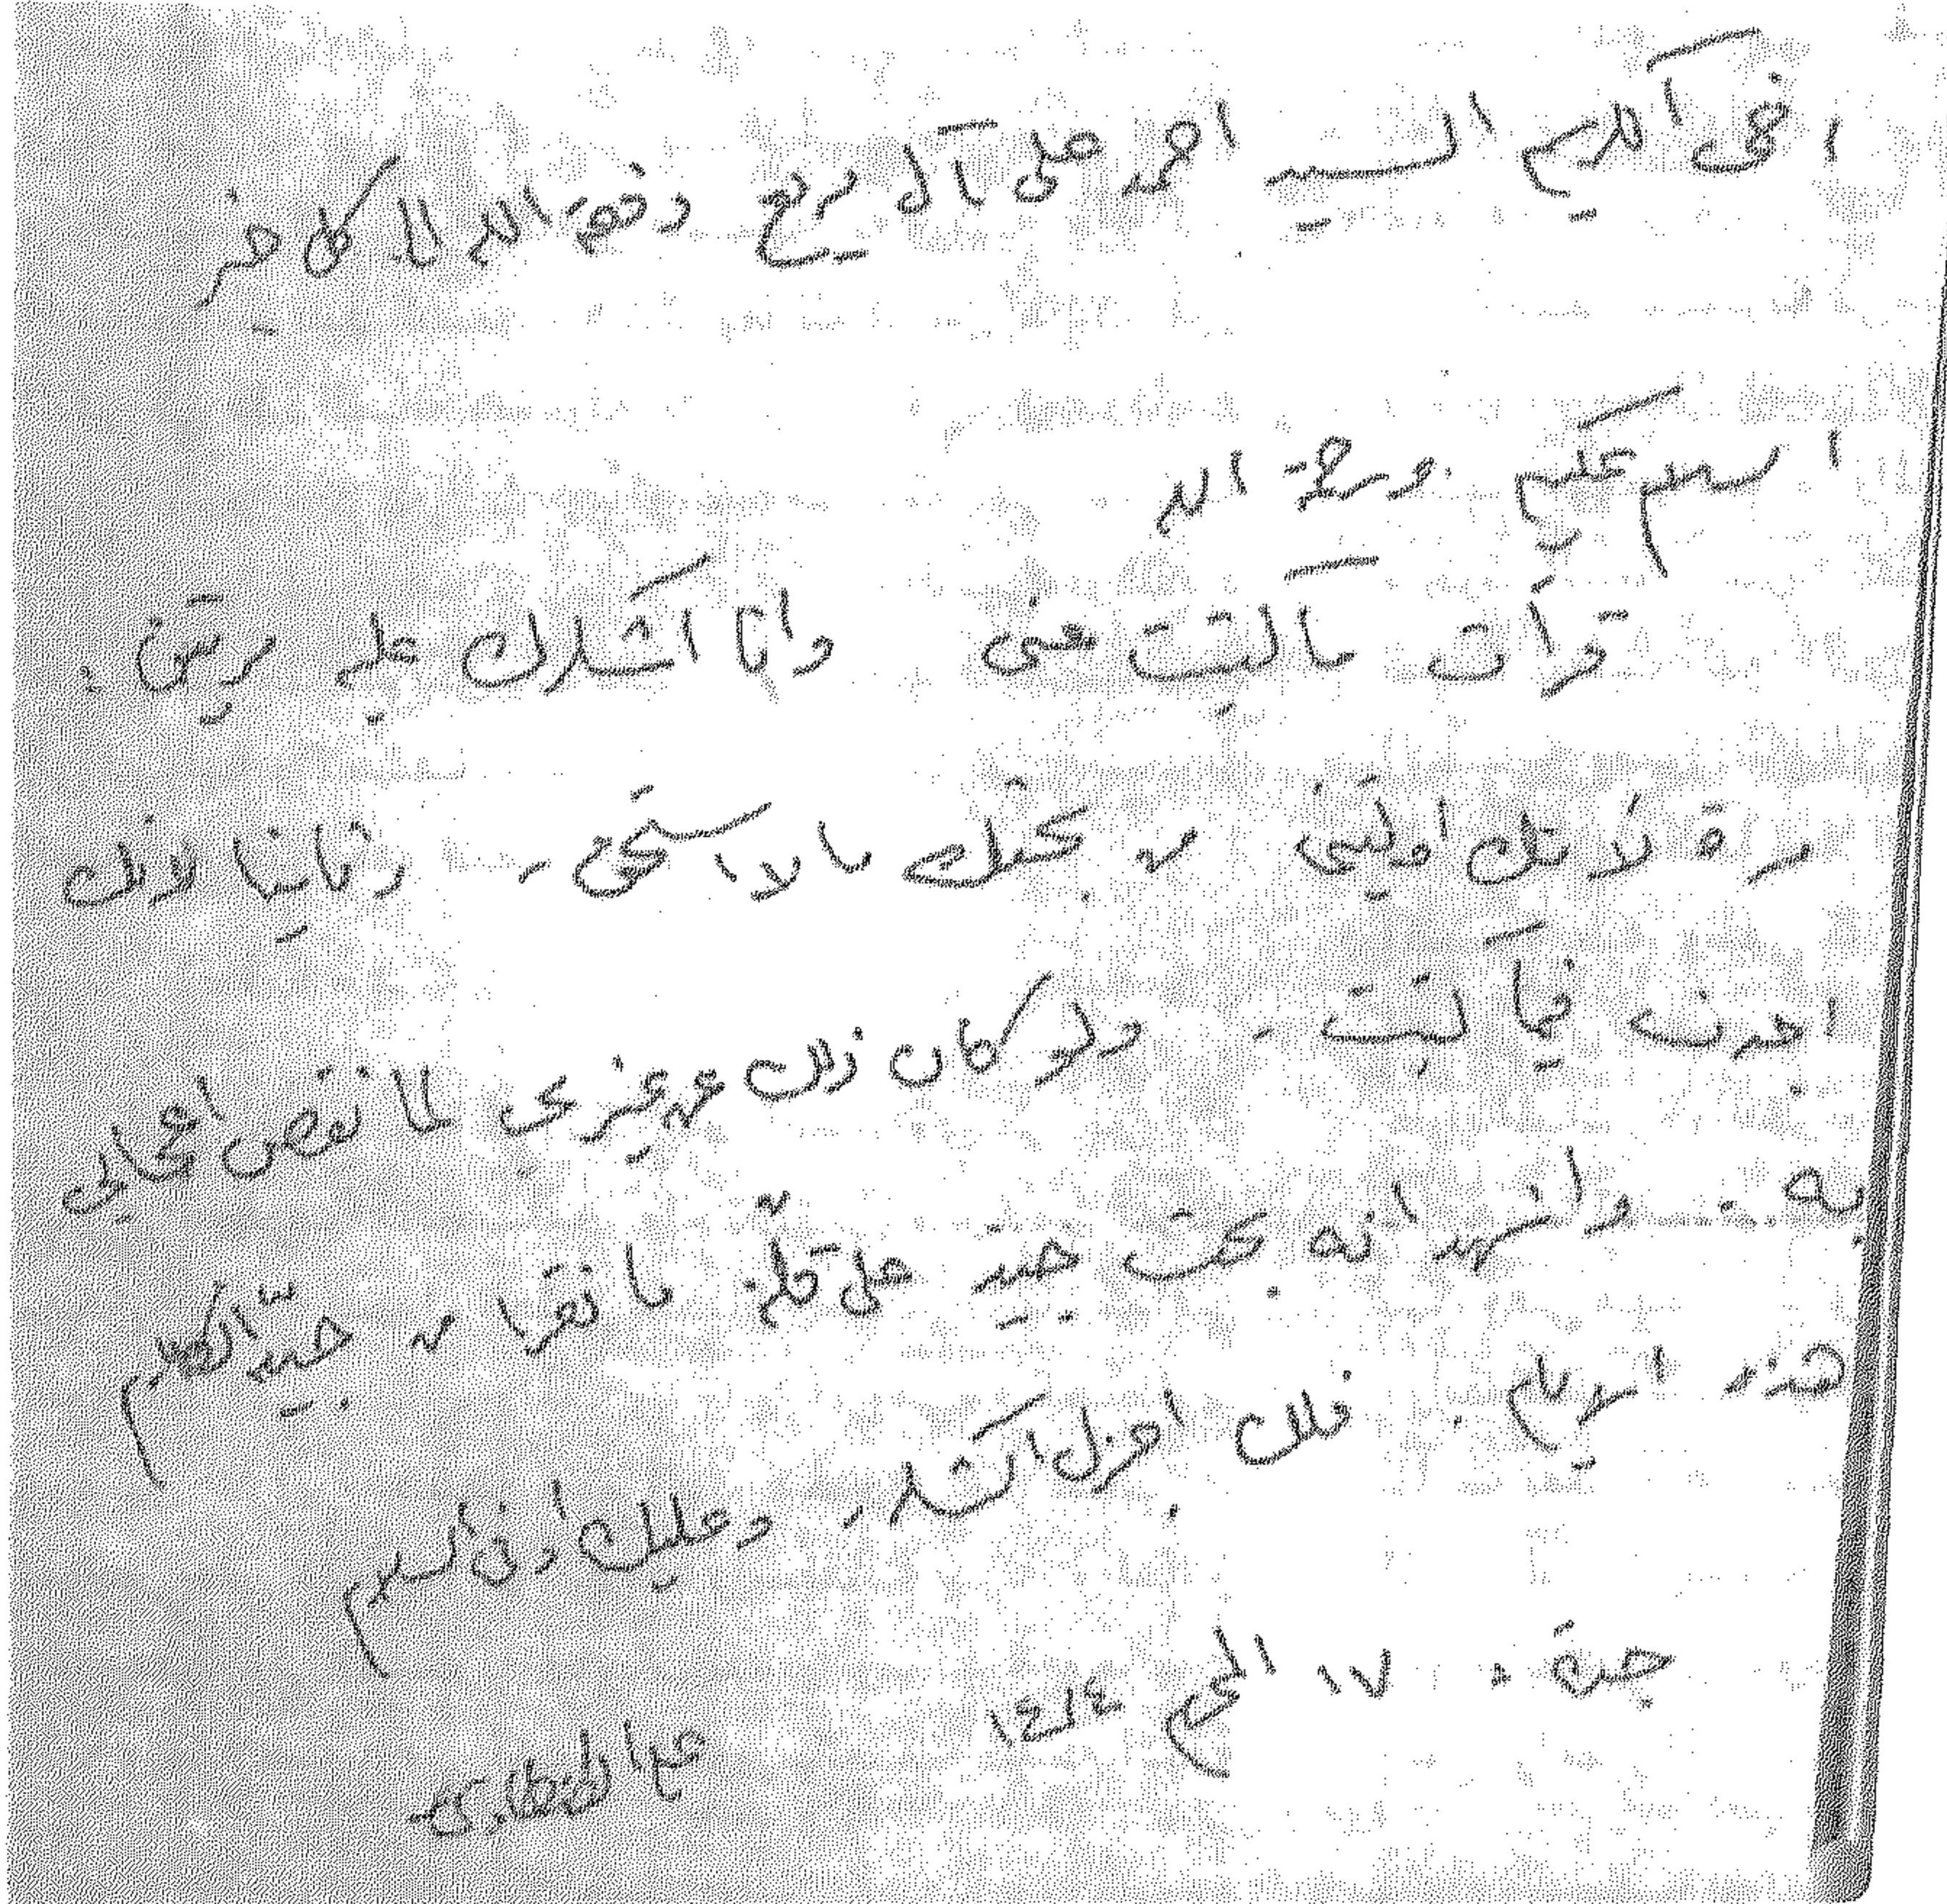 اخي الكريم السيد احمد علي آل مريع وفقه الله الى كل خير
السلام عليكم ورحمة الله
قرأت ما كتبت عني وانا اشكرك عليه مرتين :
مرة لانك اوليتني من بحثك ما لا استحق - وثانيا لانك
اجدت فيما كتبت - ولو كان ذلك عن غيري لما نقص اعجابي
به . واشهد انه بحث جيد على قلّة ما نقرا من جيّد الكلام
هذه الايام . فلك اجزل الشكر ، وعليك اوفى السلام
جدة ، ١٧ المحرم ١٤١٤
علي الطنطاوي